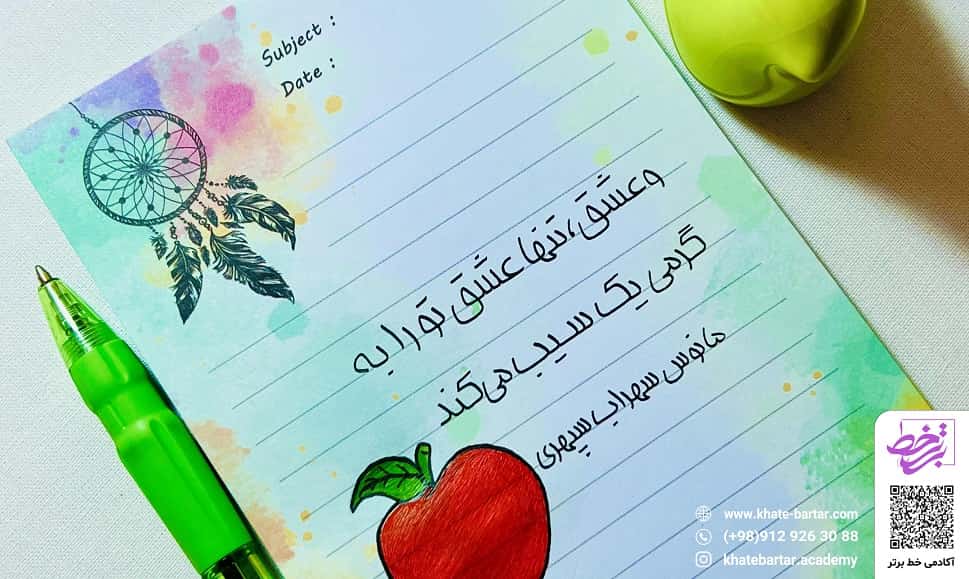 Subject :
Date :
و عشق، تنها عشق تو را به
گرمی یک سیب می‌کند
مانوس سهراب سپهری
خط برتر
www.khate-bartar.com
(+98)912 926 30 88
khatebartar.academy
آکادمی خط برتر